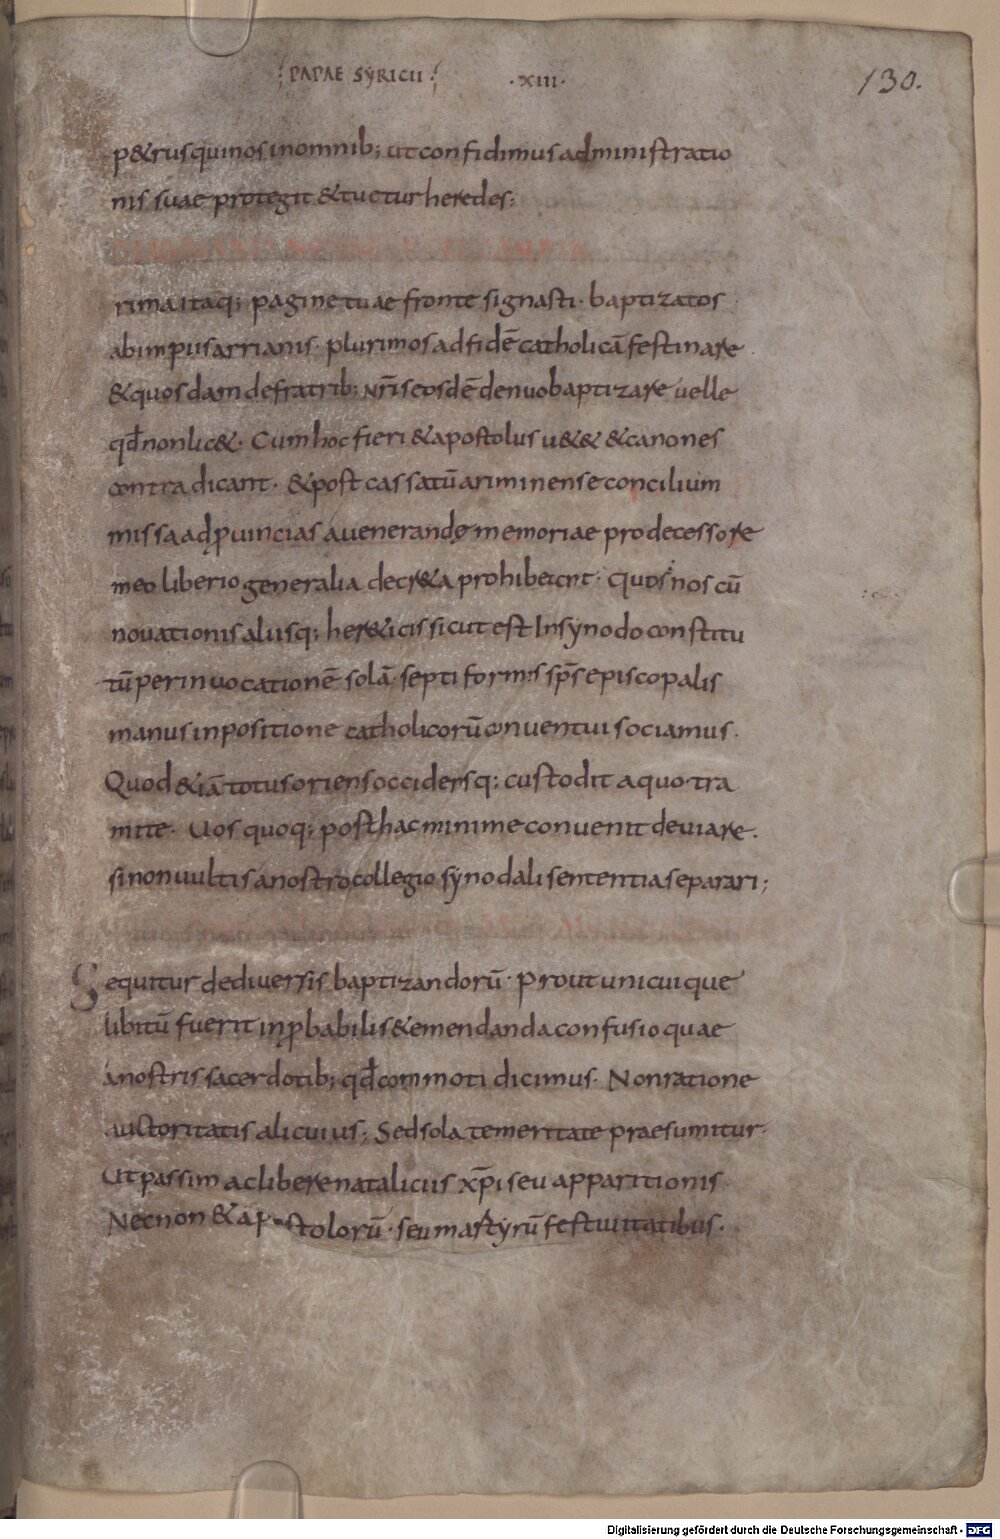 PAPAE SYRICII · XIII ·
130.
p&rus qui nos in omnib; ut confidimus administratio
nis suae protegit & tuetur heredes;
rima itaq; pagine tuae fronte signasti · baptizatos
ab impiis arrianis · plurimos ad fidē catholicā festinare
& quosdam de fratrib; nr̄is eosdē denuo baptizare velle
qđ non lic& · Cum hoc fieri & apostolus u&& & canones
contradicant · & post cassatū ariminense concilium
missa ad ꝓuincias a uenerando memoriae prodecessore
meo liberio generalia decr&a prohibeant · Quos nos cū
nouationis aliisq; her&icis sicut est In synodo constitu
tū per inuocationē solā septiformis sp̄s episcopalis
manus inpositione catholicorū conuentui sociamus ·
Quod &iā totus oriens occidensq; custodit a quo tra
mite · Uos quoq; posthac minime conuenit deuiare ·
si non uultis a nostro collegio synodali sententia separari;
Sequitur de diuersis baptizandorū · Prout unicuique
libitū fuerit inꝓbabilis & emendanda confusio quae
a nostris sacerdotib; qđ commoti dicimus · Non ratione
auctoritatis alicuius; Sed sola temeritate praesumitur ·
Ut passim ac libere nataliciis xp̄i seu apparitionis
Necnon & apostolorū · seu martyrū festiuitatibus ·
Digitalisierung gefördert durch die Deutsche Forschungsgemeinschaft - DFG